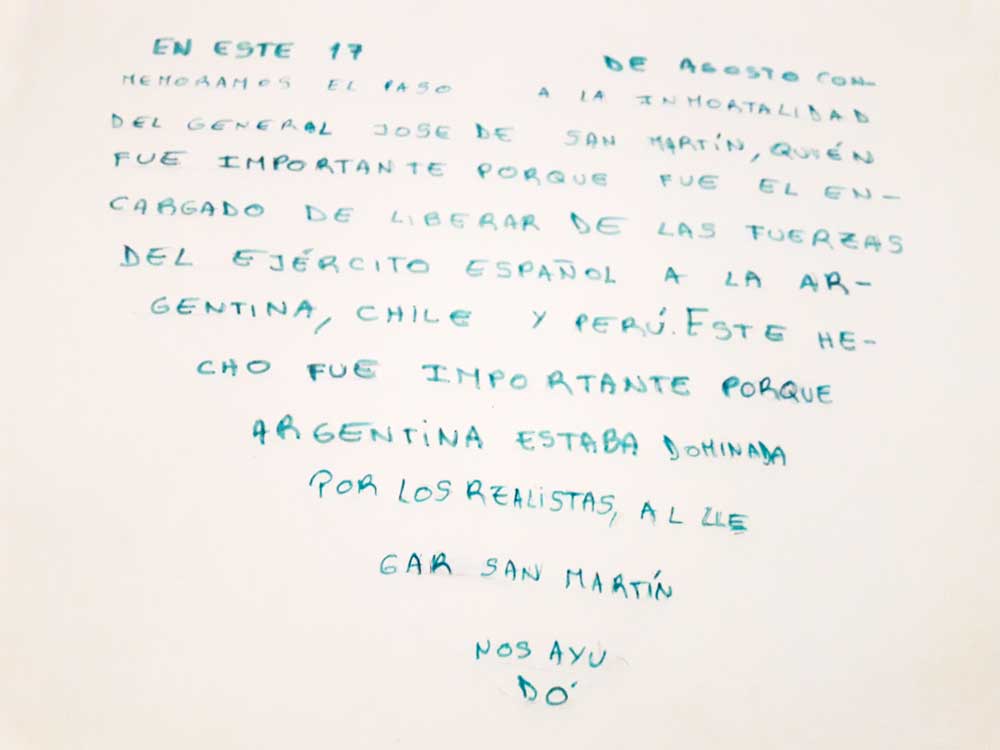 EN ESTE 17 DE AGOSTO CON-
MEMORAMOS EL PASO A LA INMORTALIDAD
DEL GENERAL JOSE DE SAN MARTÍN, QUIÉN
FUE IMPORTANTE PORQUE FUE EL EN-
CARGADO DE LIBERAR DE LAS FUERZAS
DEL EJÉRCITO ESPAÑOL A LA AR-
GENTINA, CHILE Y PERÚ. ESTE HE-
CHO FUE IMPORTANTE PORQUE
ARGENTINA ESTABA DOMINADA
POR LOS REALISTAS, AL LLE
GAR SAN MARTÍN
NOS AYU
DÓ